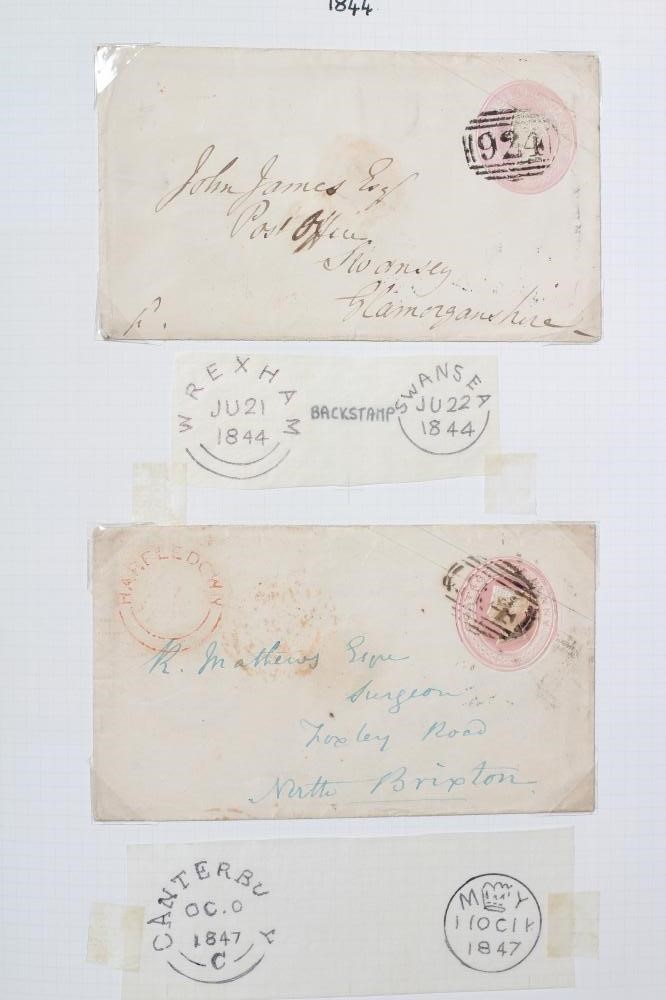 1844
924
John James Esq
Post Office
Swansey
Glamorganshire
P.
WREXHAM
JU21
1844
BACKSTAMP
SWANSEA
JU22
1844
HARBLEDOWN
R. Mathews Esqre
Surgeon
Foxley Road
North Brixton
CANTERBURY
OC.O
1847
C
M Y
1847